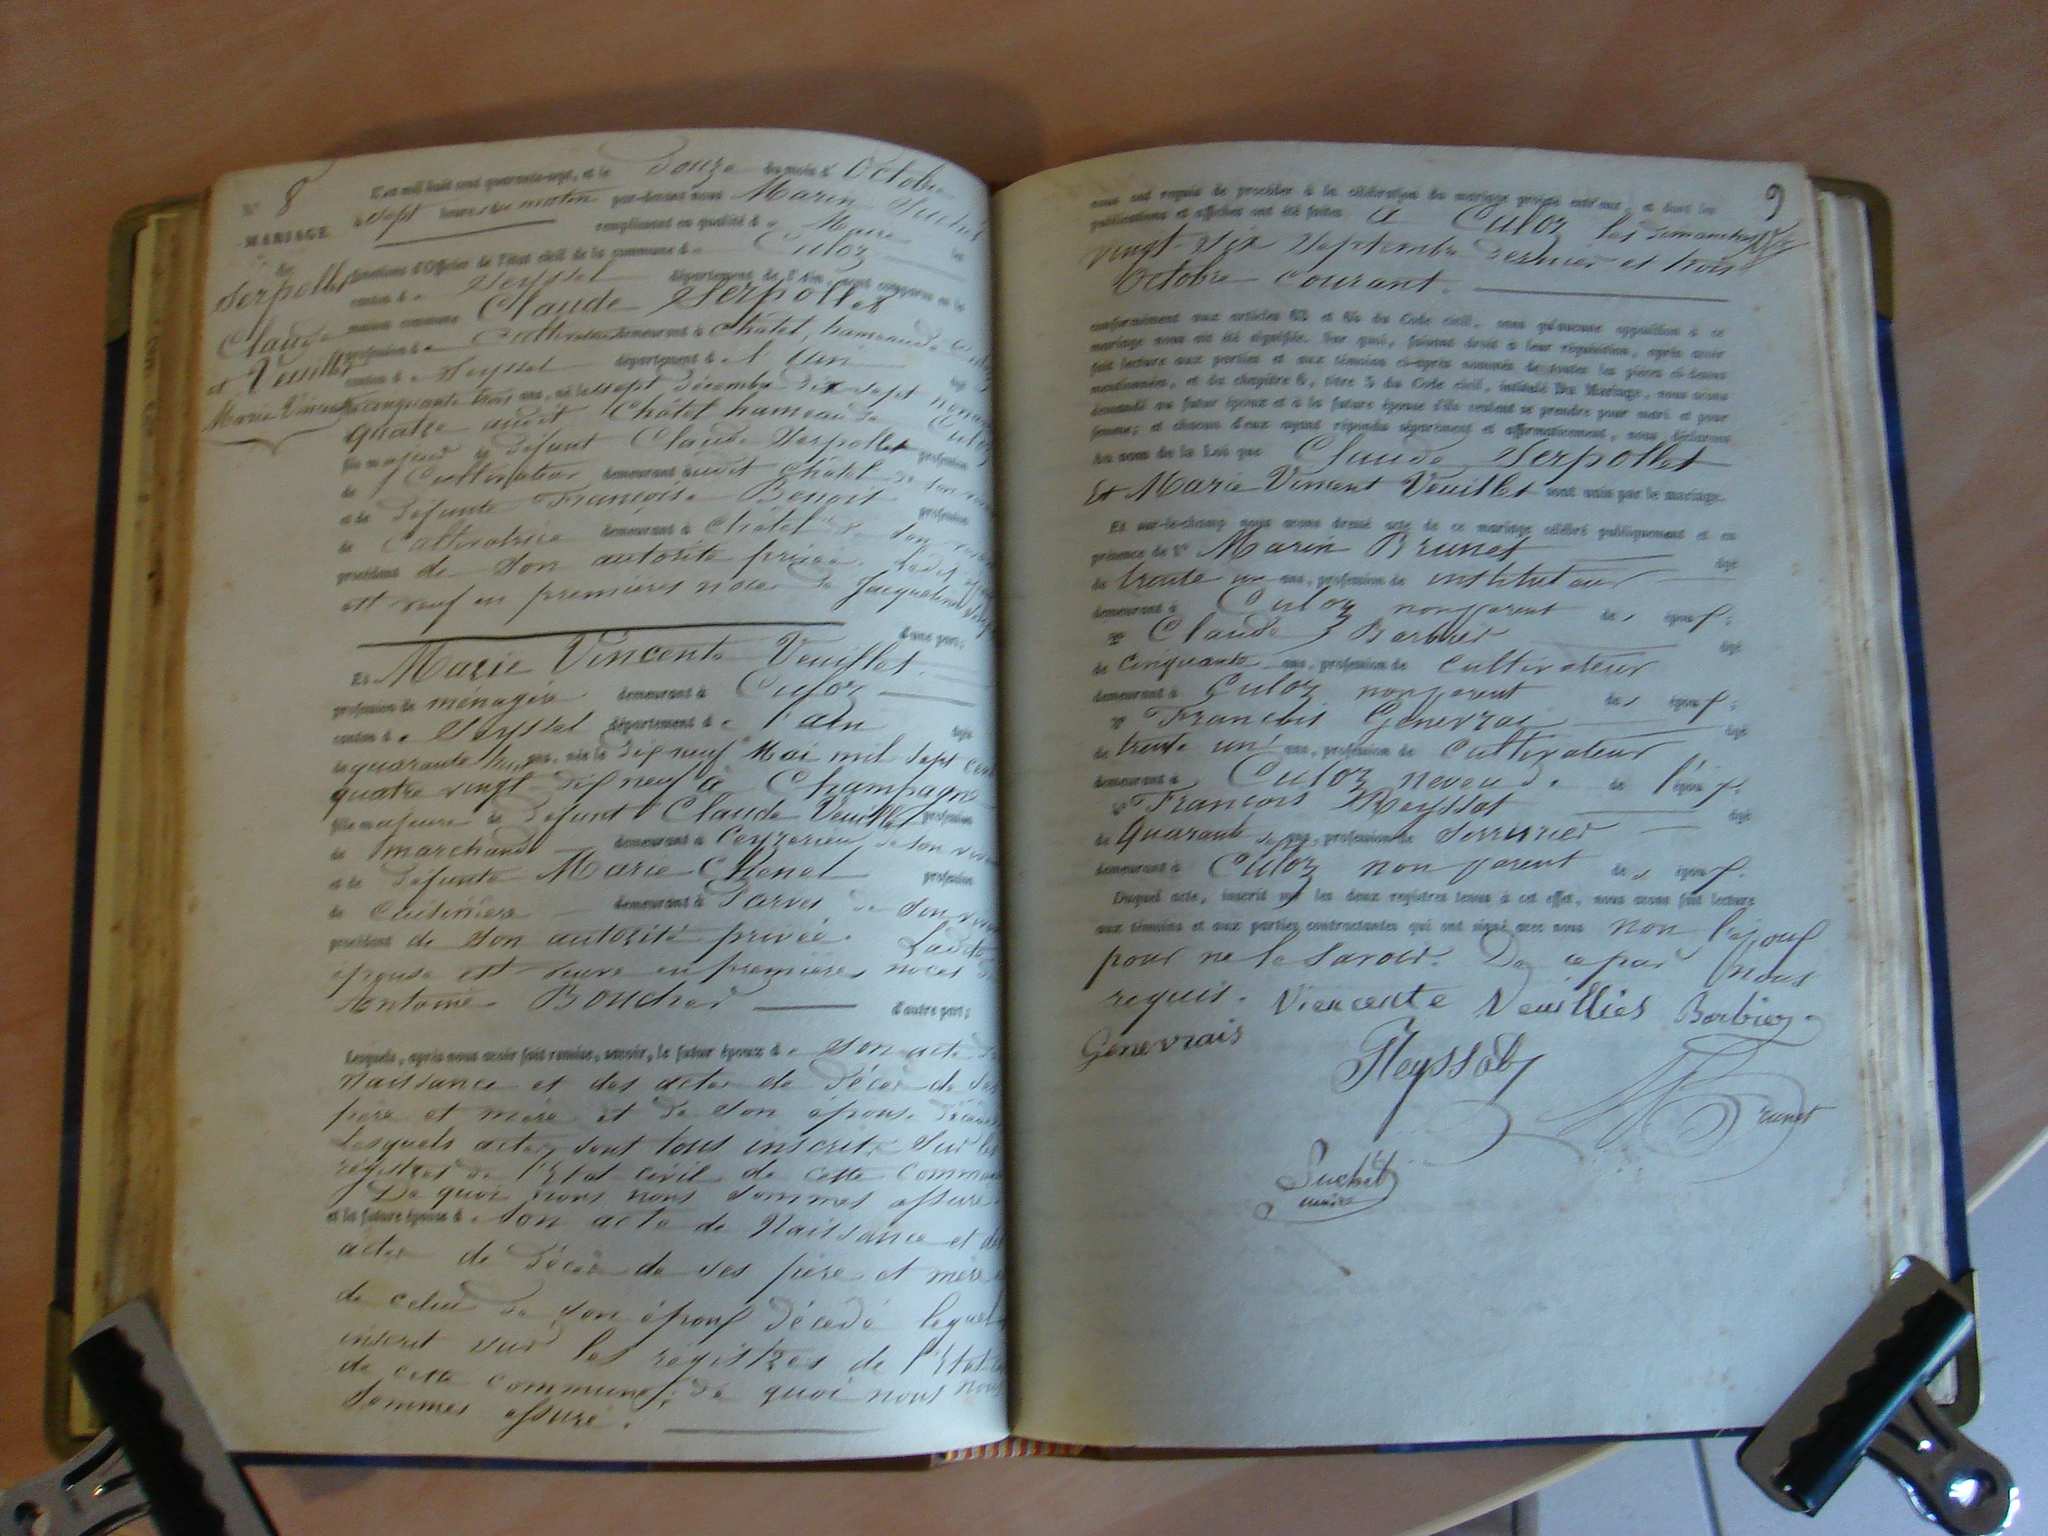 N° 8
MARIAGE
de
Serpollet
Claude
et Veuillet
Marie Vincente
L'an mil huit cent quarante-sept, et le douze du mois d'Octobre
à sept heures du matin par-devant nous Marin Suchet
remplissant en qualité de Maire les
fonctions d'Officier de l'état civil de la commune de Culoz
canton de Seyssel département de l'Ain, sont comparus en la
maison commune Claude Serpollet
profession de Cultivateur demeurant à Châtel, hameau de
canton de Seyssel département de l'Ain âgé
de cinquante trois ans, né le sept décembre dix sept
quatre audit Châtel hameau de Culoz
fils majeur de défunt Claude Serpollet profession
de Cultivateur demeurant audit Châtel de son
et de défunte Françoise Benoit profession
de Cultivatrice demeurant à Châtel de son
procédant de son autorité privée. Ledit
est veuf en premières noces de Jacqueline
d'une part;
Et Marie Vincente Veuillet
profession de ménagère demeurant à Culoz
canton de Seyssel département de l'ain âgée
de quarante huit ans, née le dix neuf Mai mil sept cent
quatre vingt dix neuf à Champagne
fille majeure de défunt Claude Veuillet profession
de marchand demeurant à Ceyzerieu de son
et de défunte Marie Chenel profession
de Cuisinière demeurant à Parves de son
procédant de son autorité privée. Ladite
épouse est veuve en premières noces
Antoine Boucher d'autre part;
Lesquels, après nous avoir fait remise, savoir, le futur époux de son acte de
naissance et des actes de décès de ses
père et mère et de son épouse
Lesquels actes sont tous inscrits sur les
registres de l'Etat civil de cette commune
De quoi nous nous sommes assuré
et la future épouse de son acte de Naissance et des
actes de décès de ses père et mère
de celui de son époux décédé lequel
inscrit sur les registres de l'Etat
de cette commune; de quoi nous nous
sommes assuré.
9
nous ont requis de procéder à la célébration du mariage projeté entr'eux, et dont les
publications et affiches ont été faites à Culoz les dimanches
vingt six septembre dernier et trois
Octobre courant.
conformément aux articles 63 et 64 du Code civil, sans qu'aucune opposition à ce
mariage nous ait été signifiée. Sur quoi, faisant droit à leur réquisition, après avoir
fait lecture aux parties et aux témoins ci-après nommés de toutes les pièces ci-dessus
mentionnées, et du chapitre 6, titre 5 du Code civil, intitulé Du Mariage, nous avons
demandé au futur époux et à la future épouse s'ils veulent se prendre pour mari et pour
femme; et chacun d'eux ayant répondu séparément et affirmativement, nous déclarons
Au nom de la Loi que Claude Serpollet
Et Marie Vincent Veuillet sont unis par le mariage.
Et sur-le-champ nous avons dressé acte de ce mariage célébré publiquement et en
présence de 1° Marin Brunet âgé
de trente un ans, profession de instituteur
demeurant à Culoz non parent des époux;
2° Claude Barbier âgé
de cinquante ans, profession de cultivateur
demeurant à Culoz non parent des époux;
3° François Genevrai âgé
de trente un ans, profession de cultivateur
demeurant à Culoz neveu de l'époux
4° François Heyssat âgé
de quarante ans, profession de Serrurier
demeurant à Culoz non parent des époux.
Duquel acte, inscrit sur les deux registres tenus à cet effet, nous avons fait lecture
aux témoins et aux parties contractantes qui ont signé avec nous non l'époux
pour ne le savoir. De ce par nous
requis. Viencente Veuillies Barbier
Genevrais
Heyssat
Brunet
Suchet
maire